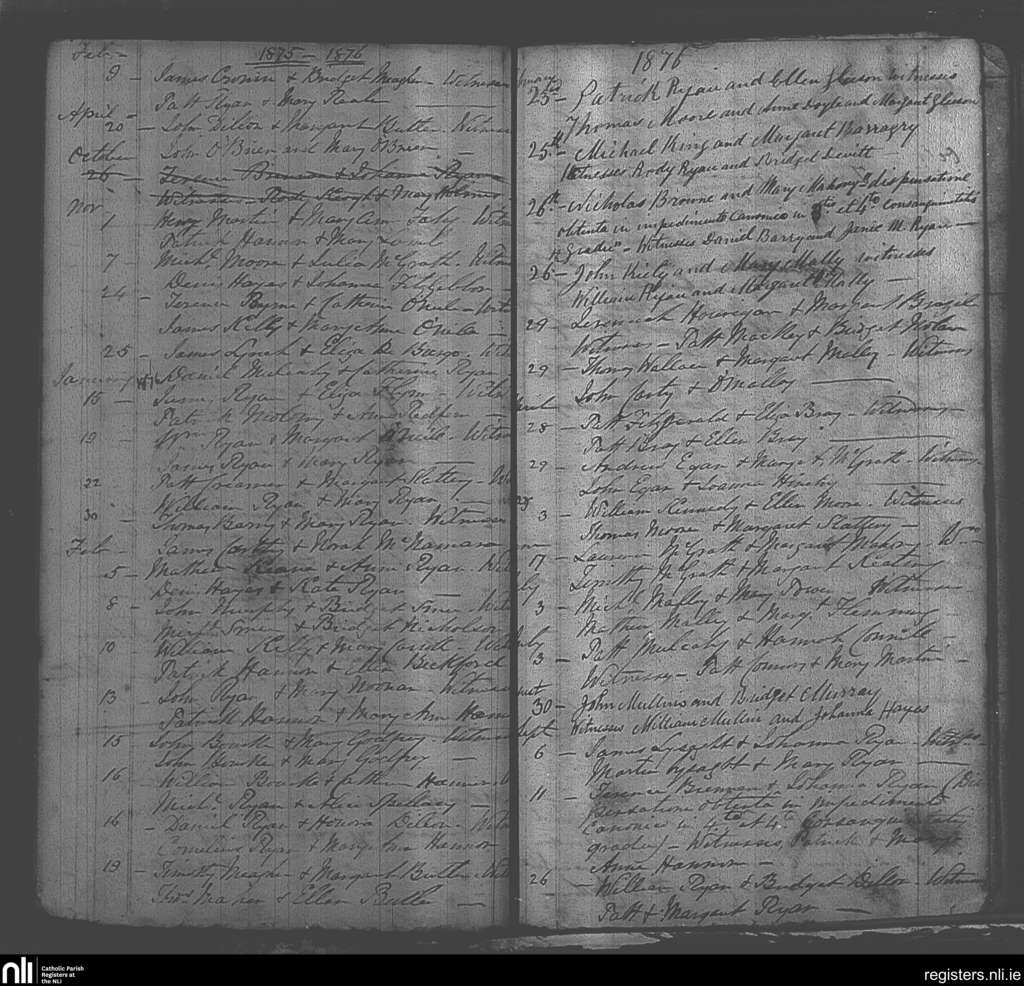 1875 – 1876
Feb –
9 – James Cronin & Bridget Meagher – Witnesses
Patt Ryan & Mary
April –
20 – John Dillon & Margaret Butler – Witness
John O'Brien and Mary O'Brien –
October
26 – Terence Brennan & Johanna Ryan
Witnesses – Rody Keogh & Mary Holmes
Nov
1 Henry Martin & Mary Ann Fahy – Witn
Patrick Hannon & Mary
7 Mich.l Moore & Julia McGrath – Witn
Denis Hayes & Johanna Fitzgibbon –
24 – Terence Byrne & Catherine O'Neile – Witn
James Kelly & Mary Anne O'Neile –
25 – James Lynch & Eliza De Burgo – Wit
January 1876 Daniel Mulcahy & Catherine Ryan
15 – James Ryan & Eliza Flynn – Witn
Patrick Molony & Ann
19 – Wm Ryan & Margaret O'Neile – Witn
James Ryan & Mary Ryan –
22 Patt Creamer & Margaret Slattery – W
William Ryan & Mary Ryan –
30 – Thomas Barry & Mary Ryan – Witnesses
Feb – James Carthy & Norah McNamara
5 – Mathew Keane & Anne Ryan – Wit
Denis Hayes & Kate Ryan –
8 – John Murphy & Bridget – Wit
& Bridget Nicholson
10 – William Kelly & Mary Carroll – Wit
Patrick Hannon & Ellen Beckford
13 – John Ryan & Mary Noonan – Witnesses
Patrick Hannon & Mary Ann Hannon
15 John Bourke & Mary Godfrey – Witness
John Bourke & Mary Godfrey –
16 – William Bourke & Cathn Hannon –
Mich.l Ryan & Alice Spellacy –
16 – Daniel Ryan & Honora Dillon – Witn
Cornelius Ryan & Mary Ann Hannon
19 – Timothy Meagher & Margaret Butler – Wit
Thos. Maher & Ellen Butler –
1876
25th – Patrick Ryan and Ellen Gleeson witnesses
Thomas Moore and Anne Doyle and Margaret Gleeson
25th – Michael King and Margaret Barragry
Witnesses Rody Ryan and Bridget Devitt –
26th – Nicholas Browne and Mary Mahony dispensatione
obtenta in impedimento Canonico in et 4to Consanguinitatis
Gradu – Witnesses Daniel Barry and Janie M. Ryan –
26 – John Kiely and Mary Mally witnesses
William Ryan and Margaret Mally –
29 – Jeremiah Hourigan & Margaret Brazil
Witnesses – Patt Mackey & Bridget Nolan
29 – Thomas Wallace & Margaret Malley – Witness
John Carty & O'Malley –
28 – Patt Fitzgerald & Eliza Bray – Witnesses –
Patt Bray & Ellen Bray –
29 – Andrew Egan & Margt McGrath – Witnesses
John Egan & Joanna –
3 – William Kennedy & Ellen Moore – Witnesses
Thomas Moore & Margaret Slattery –
17 – Laurence McGrath & Margaret Mahony – W
Timothy McGrath & Margaret Keating
3 – Mich.l Malley & Mary Power Witnesses
Mathew Malley & Margt Flemming
3 – Patt Mulcahy & Hannah Connell –
Witnesses – Patt Connors & Mary Martin –
30 – John Mullins and Bridget Murray
Witnesses William Mullin and Johanna Hayes
Sept
6 – James Lysaght & Johanna Ryan – Witness
Martin Lysaght & Mary Ryan –
11 – Terence Brennan & Johanna Ryan (Dis
pensatione obtenta in impedimento
Canonico in 4to et 4to Consanguinitatis
gradu) – Witnesses, Patrick & Mary
Anne Hannon –
26 – William Ryan & Bridget Dillon – Witness
Patt & Margaret Ryan –
nli
Catholic Parish
Registers at
the NLI
registers.nli.ie